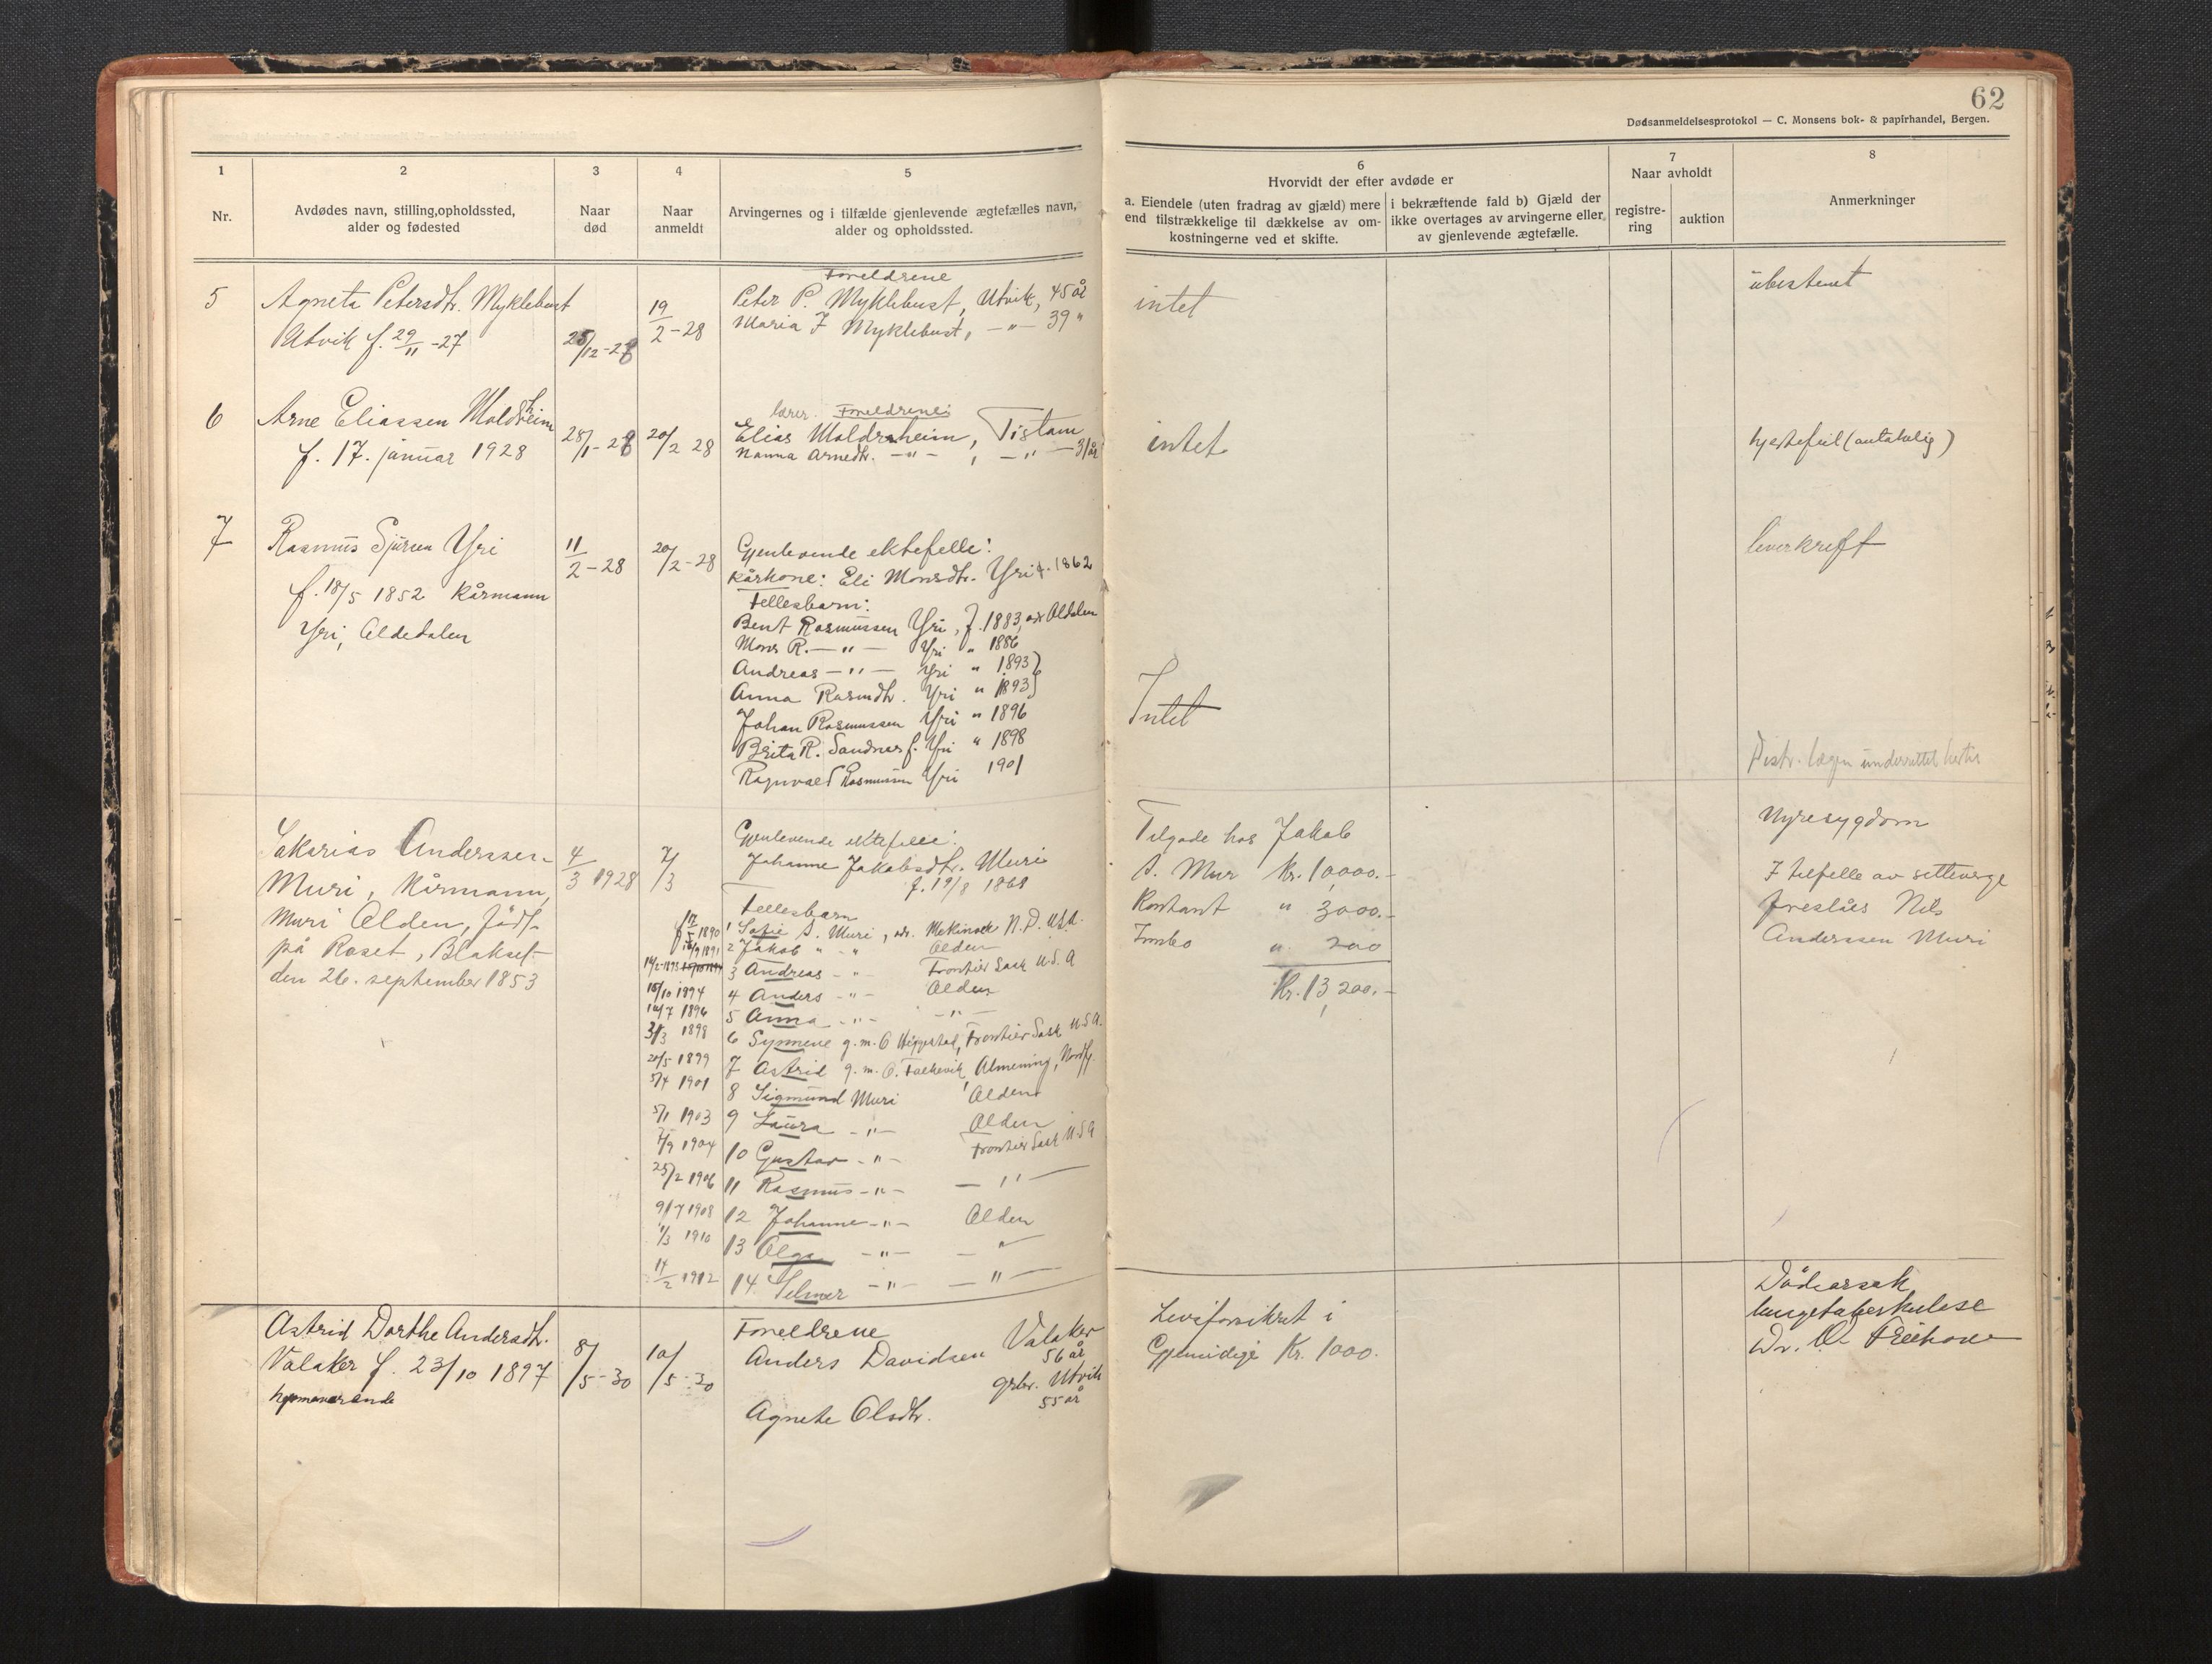 62
Dødsanmeldelsesprotokol — C. Monsens bok- & papirhandel, Bergen.
1
Nr.
2
Avdødes navn, stilling, opholdssted,
alder og fødested
3
Naar
død
4
Naar
anmeldt
5
Arvingernes og i tilfælde gjenlevende ægtefælles navn,
alder og opholdssted.
6
Hvorvidt der efter avdøde er
a. Eiendele (uten fradrag av gjæld) mere
end tilstrækkelige til dækkelse av om-
kostningerne ved et skifte.
i bekræftende fald b) Gjæld der
ikke overtages av arvingerne eller
av gjenlevende ægtefælle.
7
Naar avholdt
registre-
ring
auktion
8
Anmerkninger
5
Agneta Petersdtr. Myklebust
Utvik f. 29/11 -27
25/12-28
19/2-28
Foreldrene
Peter P. Myklebust, Utvik, 45 år
Maria J Myklebust, -"- 39 "
intet
ubestemt
6
Arne Eliassen Moldrheim
f. 17. januar 1928
28/1-28
20/2 28
lærer. Foreldrene:
Elias Moldrheim, Tistam
Nanna Arnedtr. -"- , -"- 31 år
intet
hjertefeil (antakelig)
7
Rasmus Sjursen Yri
f. 18/5 1852 kårmann
Yri, Oldedalen
11/2-28
20/2-28
Gjenlevende ektefelle:
Kårkone: Eli Monsdtr. Yri f. 1862
Fellesbarn:
Bent Rasmussen Yri, f. 1883, adr Oldalen
Mons R. -"- Yri " 1886
Andreas -"- Yri " 1893
Anna Rasmdtr. Yri " 1893
Johan Rasmussen Yri " 1896
Brita R. Sandnes f. Yri " 1898
Ragnvald Rasmussen Yri 1901
Intet
leverkreft
Distr. lægen underrettet
Sakarias Anderssen
Muri, Kårmann,
Muri Olden, född
på Roset, Blakset
den 26. september 1853
4/3 1928
7/3
Gjenlevende ektefelle:
Johanne Jakobsdtr. Muri
f. 19/8 1868
Fellesbarn
1890 1 Sofie S. Muri, adr. Mekinock N.D. U.S.A.
1891 2 Jakob " " Olden
14/2-1893 3 Andreas -"- Frontier Sask U.S.A
15/10 1894 4 Anders -"- Olden
1896 5 Anna -"- -"-
3/3 1898 6 Synneve g.m. O Frontier Sask U.S.A.
20/5 1899 7 Astrid g.m. O. Falkevik, Almenning, Nordfj.
5/4 1901 8 Sigmund Muri Olden
5/1 1903 9 Laura -"- Olden
7/9 1904 10 Gustav -"- Frontier Sask U.S.A
25/2 1906 11 Rasmus -"- -"-
9/7 1908 12 Johanne -"- Olden
1/3 1910 13 Olga -"- -"-
14/2 1912 14 Selmer -"- -"-
Tilgode hos Jakob
S. Muri Kr. 10,000.-
Kontant " 3000.-
Innbo " 200
Kr. 13,200.-
Nyresygdom
I tilfelle av setteverge
foreslåes Nils
Anderssen Muri
Astrid Dorthe Andersdtr.
Valaker f. 23/10 1897
hjemmeværende
8/5-30
10/5-30
Foreldrene
Anders Davidsen Valaker
56 år
grbr. Utvik
Agnete Olsdtr. 55 år
Livsforsikret i
Gjensidige Kr. 1000.
Dödsarsak
lungetuberkulose
Dr. O.